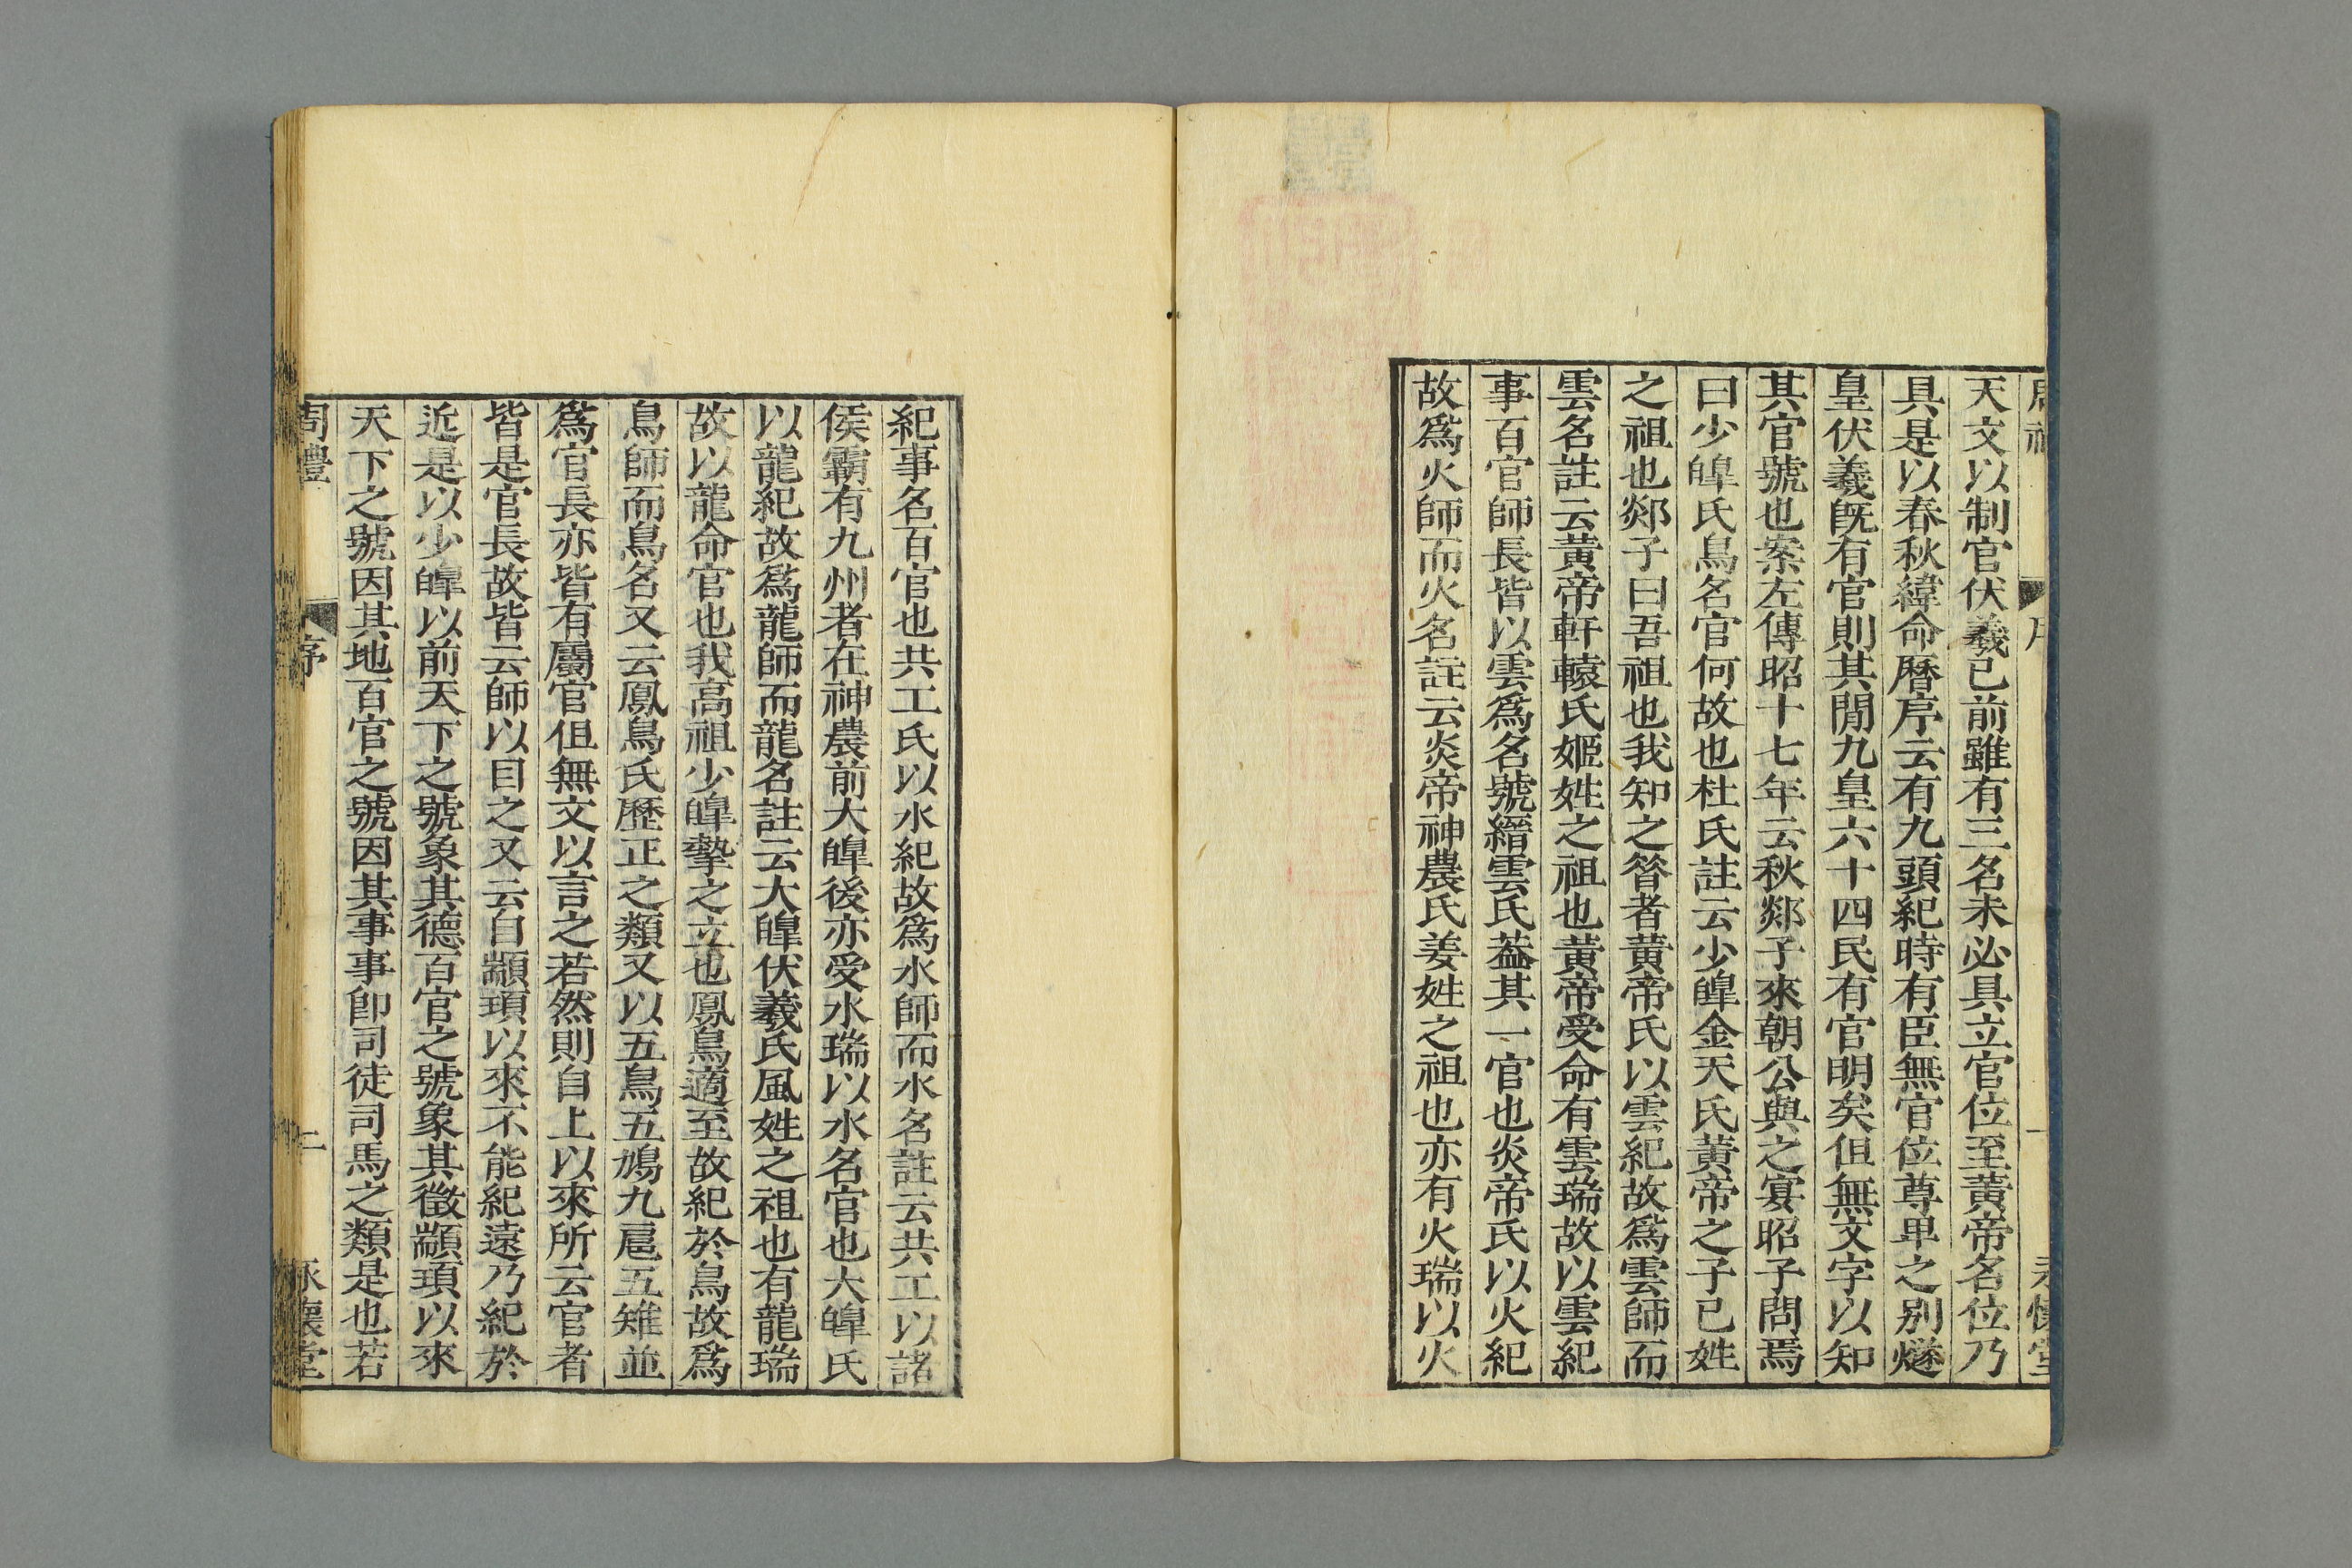 天文以制官伏羲已前雖有三名未必具立官位至黃帝名位乃
具是以春秋緯命曆序云有九頭紀時有臣無官位尊卑之別燧
皇伏羲旣有官則其閒九皇六十四民有官明矣但無文字以知
其官號也案左傳昭十七年云秋郯子來朝公與之宴昭子問焉
曰少皥氏鳥名官何故也杜氏註云少皥金天氏黃帝之子已姓
之祖也郯子曰吾祖也我知之昝者黃帝氏以雲紀故爲雲師而
雲名註云黃帝軒轅氏姬姓之祖也黃帝受命有雲瑞故以雲紀
事百官師長皆以雲爲名號縉雲氏葢其一官也炎帝氏以火紀
故爲火師而火名註云炎帝神農氏姜姓之祖也亦有火瑞以火
紀事名百官也共工氏以水紀故爲水師而水名註云共工以諸
侯霸有九州者在神農前大皥後亦受水瑞以水名官也大皥氏
以龍紀故爲龍師而龍名註云大皥伏羲氏風姓之祖也有龍瑞
故以龍命官也我高祖少皥摯之立也鳳鳥適至故紀於鳥故爲
鳥師而鳥名又云鳳鳥氏歷正之類又以五鳥五鳩九扈五雉並
爲官長亦皆有屬官但無文以言之若然則自上以來所云官者
皆是官長故皆云師以目之又云自顓頊以來不能紀遠乃紀於
近是以少皥以前天下之號象其德百官之號象其徵顓頊以來
天下之號因其地百官之號因其事事卽司徒司馬之類是也若
周禮 序 二 永懷堂